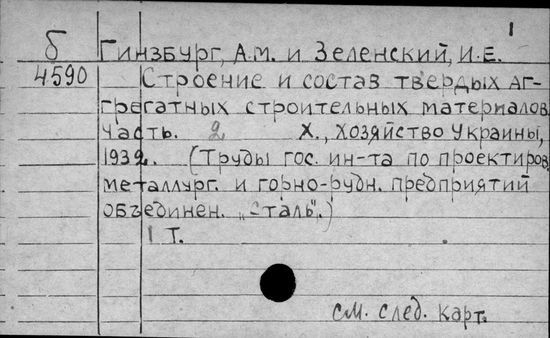 1
Б Гинзбург, А.М. и Зеленский, И.Е.
4590 Строение и состав твердых аг-
грегатных строительных материалов.
Часть. 2 Х., Хозяйство Украины,
1932. (Труды гос. ин-та по проектиров.
металлург. и горно-рудн. предприятий
объединен. „Сталь".)
1 т.
см. след. карт.